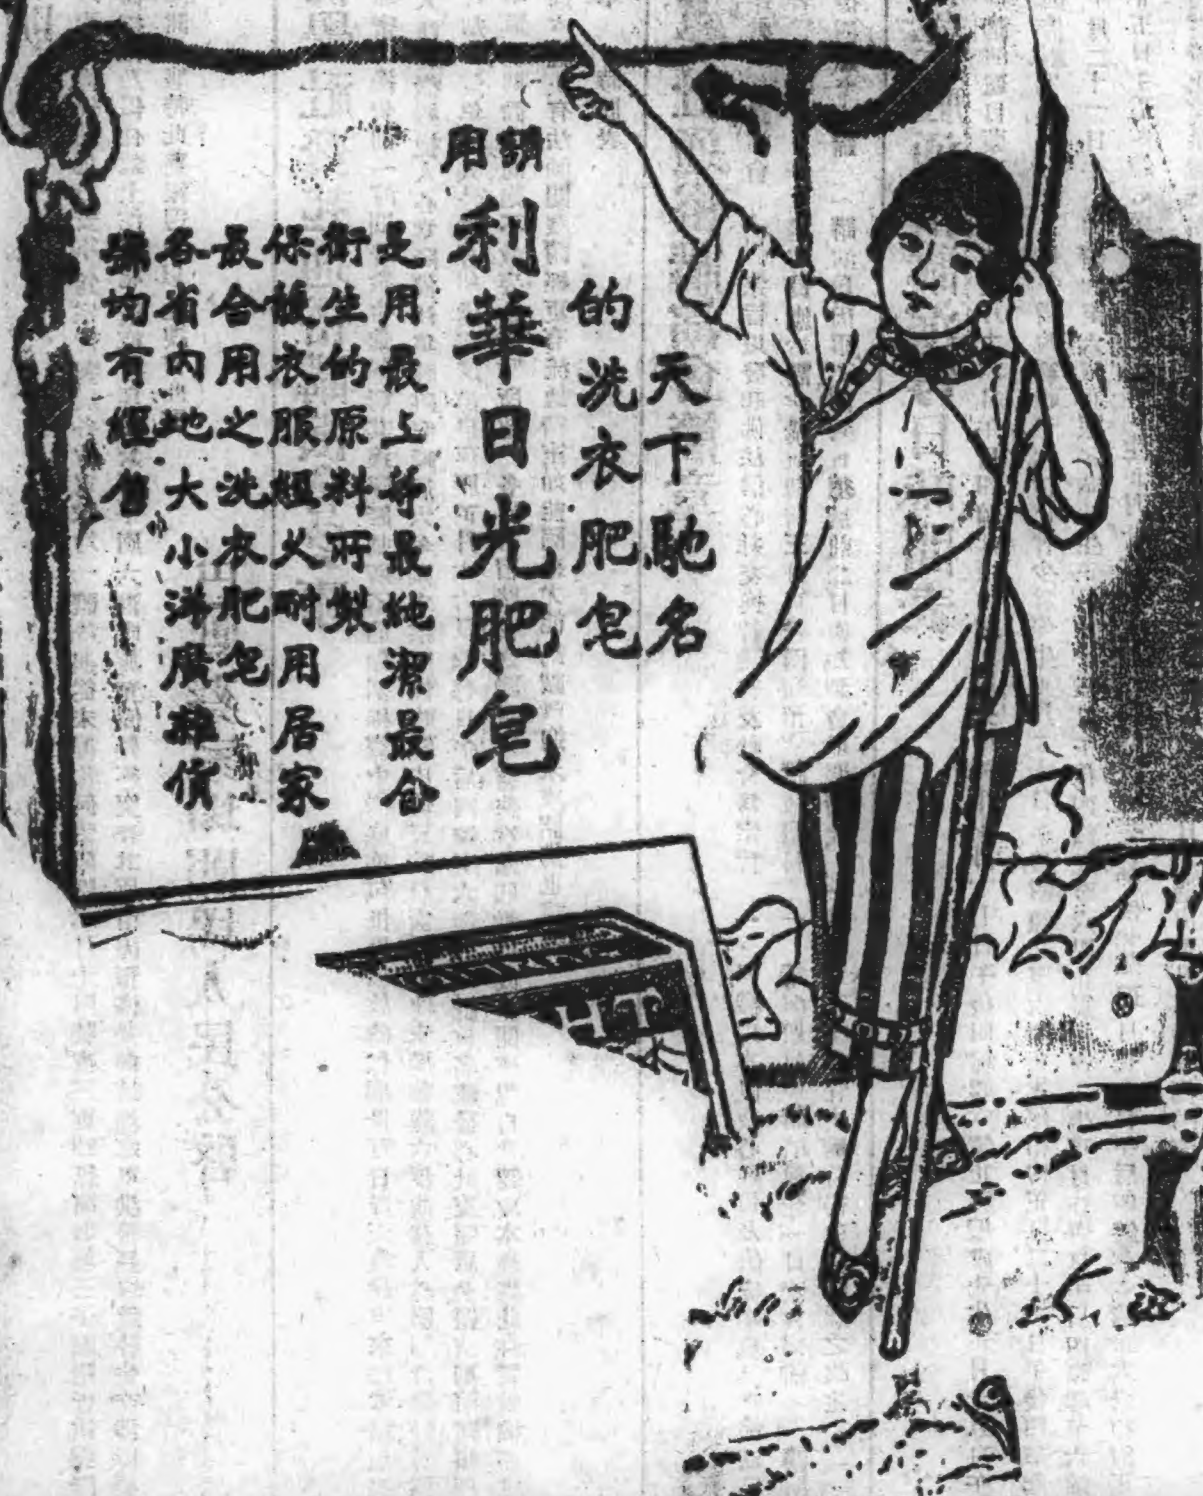 天下馳名
的洗衣肥皂
請用
利華日光肥皂
是用最上等最純潔最合
衛生的原料所製
保護衣服經久耐用居家
最合用之洗衣肥皂
各省內地大小洋廣雜貨
號均有經售
HT